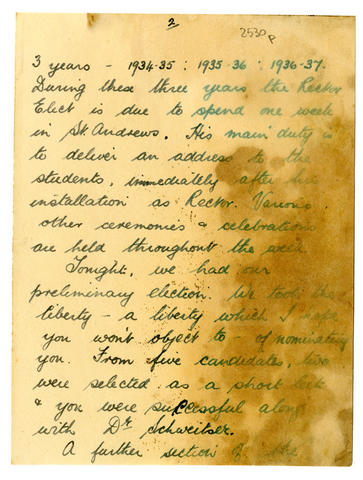 2
2530p
3 years - 1934-35 : 1935-36 : 1936-37.
During these three years, the Rector
Elect is due to spend one week
in St. Andrews. His main duty is
to deliver an address to the
students, immediately after his
installation as Rector. Various
other ceremonies & celebrations
are held throughout the week.
Tonight, we had our
preliminary election. We took the
liberty - a liberty which I hope
you won't object to - of nominating
you. From five candidates, two
were selected as a short leet
& you were successful along
with Dr Schweitser.
A further section of the